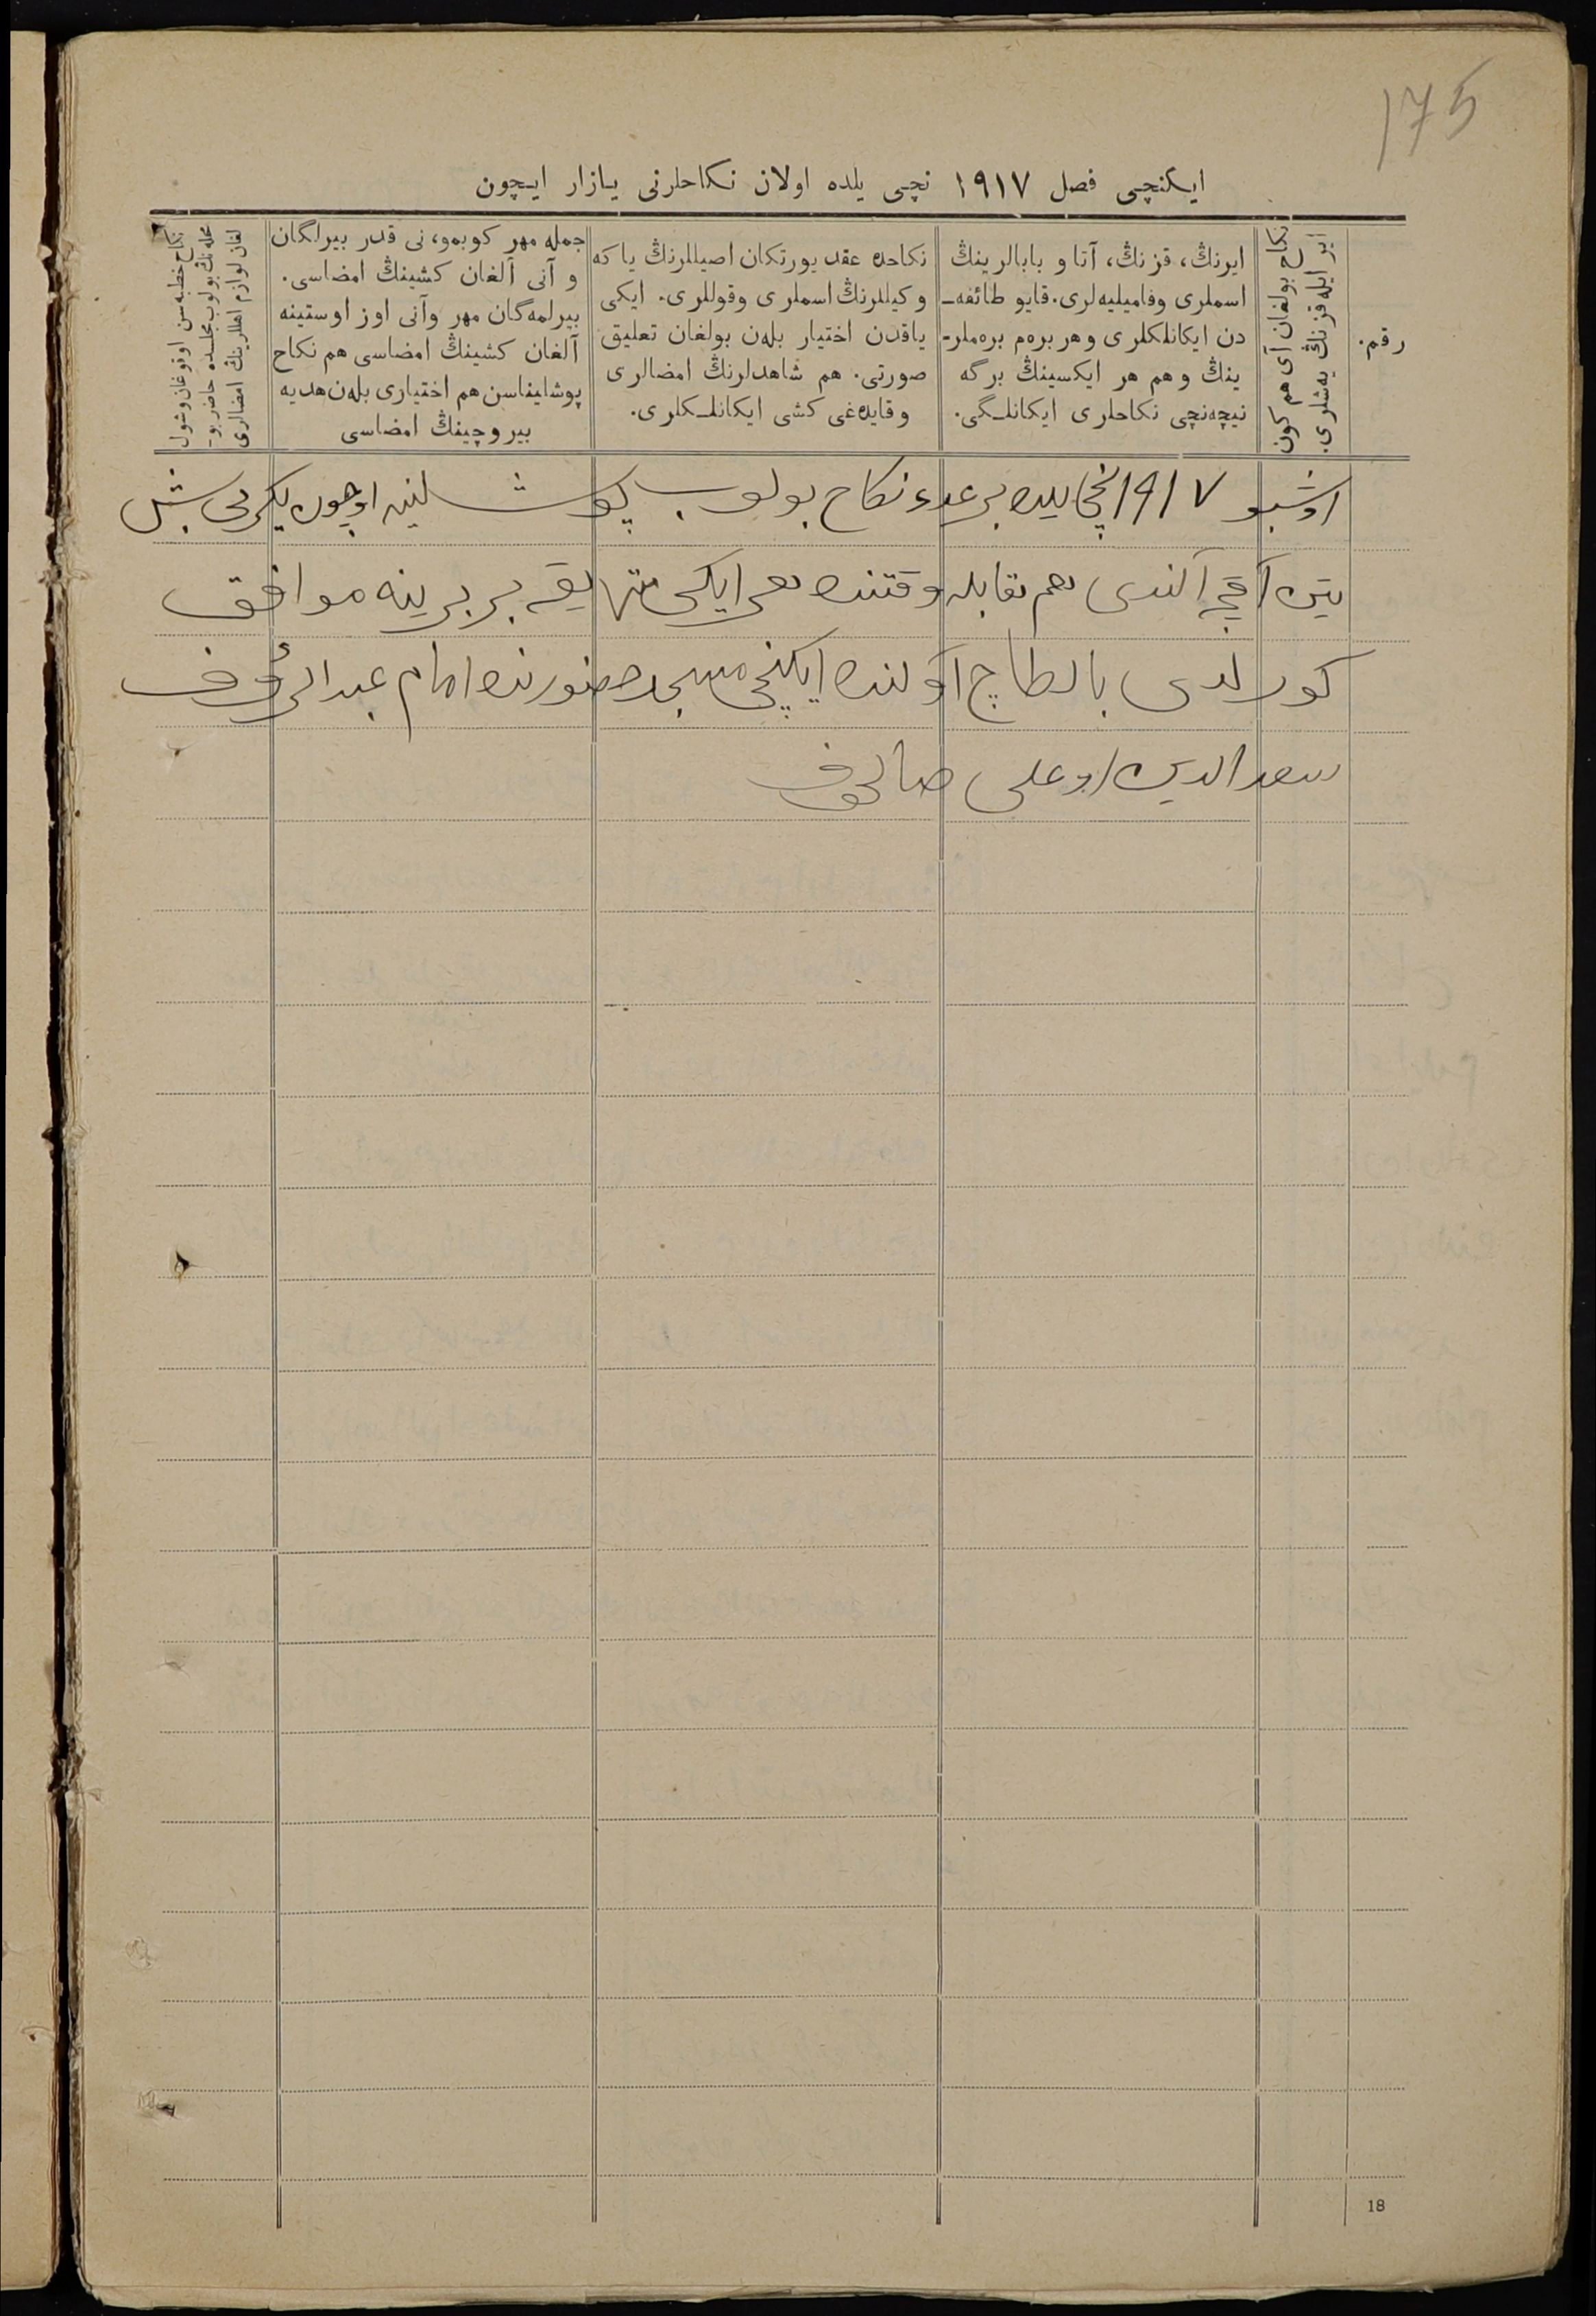 175
ایکنچی فصل ١٩١٧ نچی یلده اولان نکاحلرنی یازار ایچون
رقم.
نکاح بولغان آی هم کون
ایر ایله قزنڭ یەشلری.
ایرنڭ، قزنڭ، آتا و بابالرینڭ
اسملری وفامیلیه‌لری. قایو طائفه‌ـ
دن ایکانلکلری و هر بره‌م بره‌ملرـ
ینڭ و هم هر ایکسینڭ برگه
نیچه‌نچی نکاحلری ایکانلـگی.
نکاحده عقد یورتکان اصیللرنڭ یا که
وکیللرنڭ اسملری وقوللری. ایکی
یاقدن اختیار بلەن بولغان تعلیق
صورتی. هم شاهدلرنڭ امضالری
وقایده‌غی کشی ایکانلـکلری.
جمله مهر کوبمو، نی قدر بیرلگان
و آنی آلغان کشینڭ امضاسی.
بیرلمه‌گان مهر وآنی اوز اوستینه
آلغان کشینڭ امضاسی هم نکاح
پوشلیناسن هم اختیاری بلەن هدیه
بیروچینڭ امضاسی
نکاح خطبه‌سن اوقوغان وشول
محله‌نڭ بولوب مجلسده حاضر بوـ
لغان لوازم اهللرینڭ امضالری
اوشبو ١٩١٧ نچی یلده بر عدد نکاح بولوب پوشلینه اوچون یکرمی بش
تین آقچه آلندی هم مقابله وقتنده هر ایکی متریقه بر برینه موافق
کورلدی بالطاچ آولنده ایکنچی مسجد حضورنده امام عبدالرؤف
سعدالدین اوغلی صالحوف
18